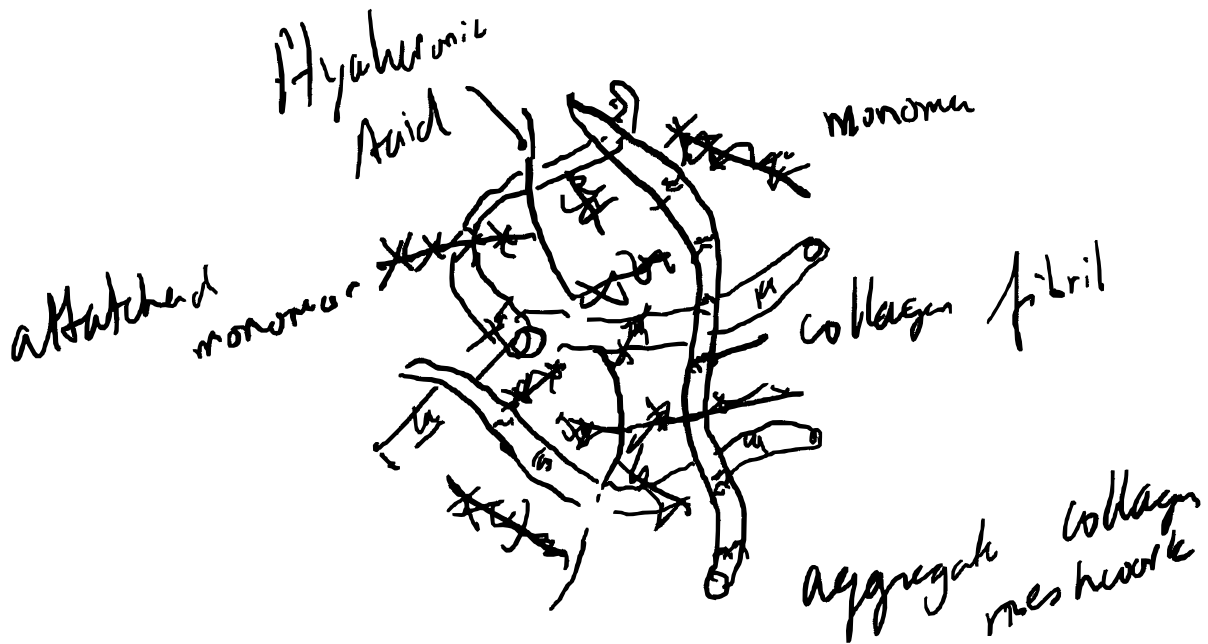 Hyaluronic
Acid
monomer
attatched
monomer
collagen fibril
aggregate collagen
meshwork